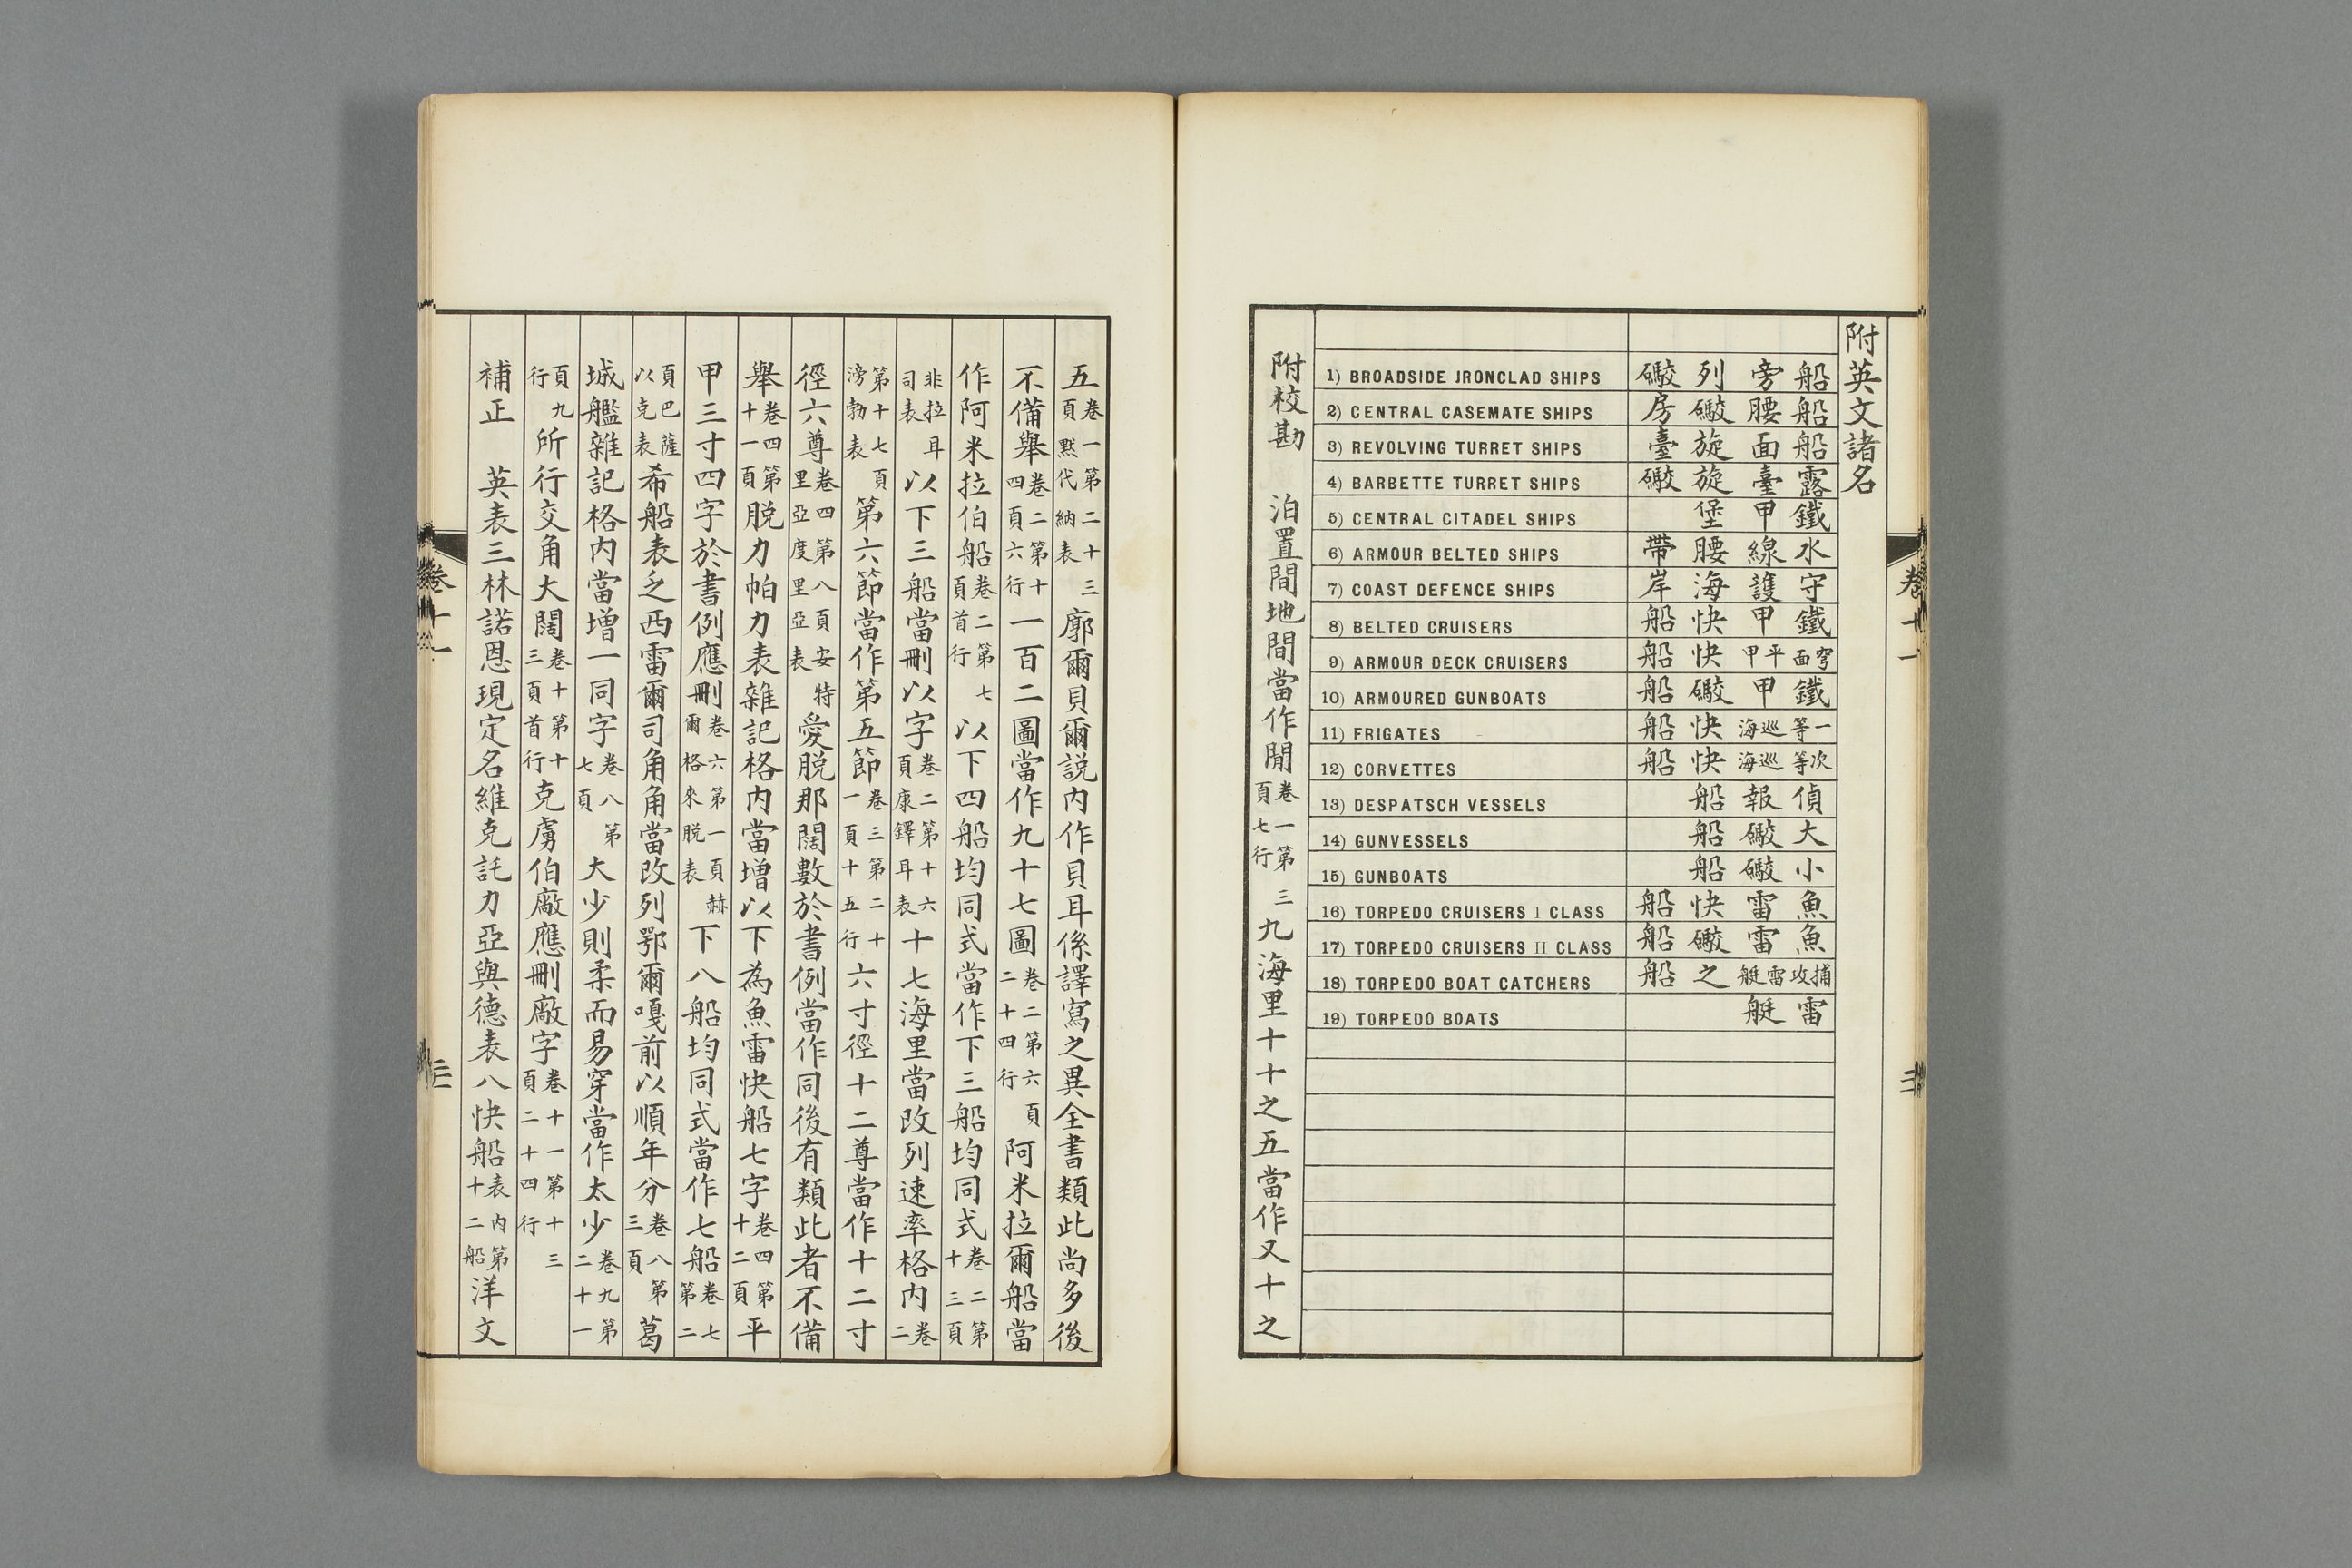 附英文諸名
船旁列礮 1) BROADSIDE IRONCLAD SHIPS
船腰礮房 2) CENTRAL CASEMATE SHIPS
船面旋臺 3) REVOLVING TURRET SHIPS
露臺旋礮 4) BARBETTE TURRET SHIPS
鐵甲堡 5) CENTRAL CITADEL SHIPS
水線腰帶 6) ARMOUR BELTED SHIPS
守護海岸 7) COAST DEFENCE SHIPS
鐵甲快船 8) BELTED CRUISERS
穹面平甲快船 9) ARMOUR DECK CRUISERS
鐵甲礮船 10) ARMOURED GUNBOATS
一等巡海快船 11) FRIGATES
次等巡海快船 12) CORVETTES
偵報船 13) DESPATSCH VESSELS
大礮船 14) GUNVESSELS
小礮船 15) GUNBOATS
魚雷快船 16) TORPEDO CRUISERS I CLASS
魚雷礮船 17) TORPEDO CRUISERS II CLASS
捕攻雷艇之船 18) TORPEDO BOAT CATCHERS
雷艇 19) TORPEDO BOATS
附校勘　泊置間地間當作閒卷一第三頁七行九海里十十之五當作又十之
卷十一
五卷一第二十三頁默代納表廓爾貝爾説内作貝耳係譯寫之異全書類此尚多後
不備舉卷二第十四頁六行一百二圖當作九十七圖卷二第六頁二十四行阿米拉爾船當
作阿米拉伯船卷二第七頁首行以下四船均同式當作下三船均同式卷二第十三頁
非拉耳司表以下三船當刪以字卷二第十六頁康鐸耳表十七海里當改列速率格内卷二
第十七頁滂勃表第六節當作第五節卷三第二十一頁十五行六寸徑十二尊當作十二寸
徑六尊卷四第八頁安特里亞度里亞表愛脱那闊數於書例當作同後有類此者不備
舉卷四第十一頁脱力帕力表雜記格内當增以下為魚雷快船七字卷四第十二頁平
甲三寸四字於書例應刪卷六第一頁赫爾格來脱表下八船均同式當作七船卷七第二
頁巴薩以克表希船表乏西雷爾司角角當改列鄂爾嘎前以順年分卷八第三頁葛
城艦雜記格内當增一同字卷八第七頁大少則柔而易穿當作太少卷九第二十一
頁九行所行交角大闊卷十第十三頁首行克虜伯廠應刪廠字卷十一第十三頁二十四行
補正　英表三林諾恩現定名維克託力亞與德表八快船表内第十二船洋文
卷十一
三